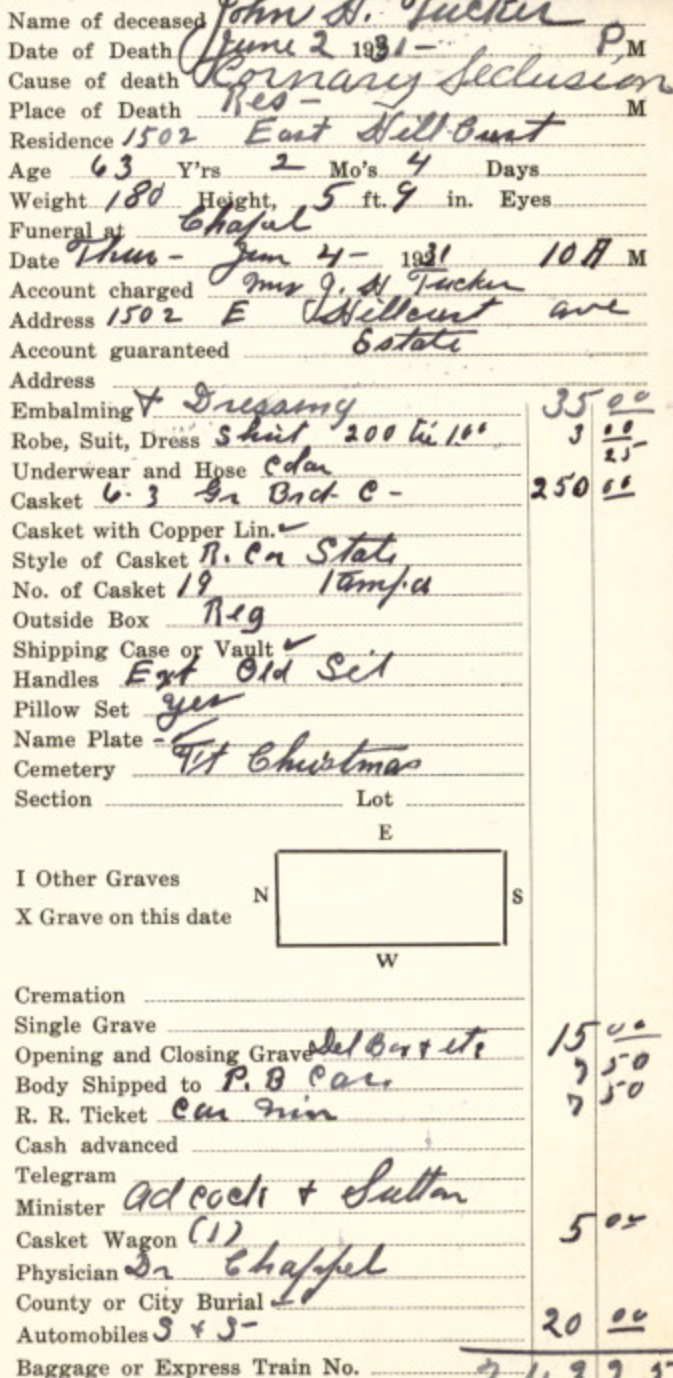 Name of deceased John H. Tucker
Date of Death June 2 1931- P M
Cause of death Cornary Seclusion
Place of Death Res- M
Residence 1502 East Hill Curst
Age 63 Y'rs 2 Mo's 4 Days
Weight 180 Height, 5 ft. 9 in. Eyes
Funeral at Chapel
Date Thur- Jun 4- 1931 10 A M
Account charged Mrs J. H Tucker
Address 1502 E Hillcurst ave
Account guaranteed Estate
Address
Embalming + Dressing 35 00
Robe, Suit, Dress Shirt 200 tie 100 3 00
Underwear and Hose Colar 25
Casket 6-3 Gr Brd- C- 250 00
Casket with Copper Lin.
Style of Casket State
No. of Casket 19 Tampa
Outside Box Reg
Shipping Case or Vault
Handles Ext Old Sil
Pillow Set yes
Name Plate -
Cemetery Ft Christmas
Section Lot
E
I Other Graves
N S
X Grave on this date
W
Cremation
Single Grave
Opening and Closing Grave Del Box + etc 15 00
Body Shipped to P. B Car 7 50
R. R. Ticket Car Min 7 50
Cash advanced
Telegram
Minister Adcock + Sutton
Casket Wagon (1) 5 00
Physician Dr Chappel
County or City Burial
Automobiles 20 00
Baggage or Express Train No.